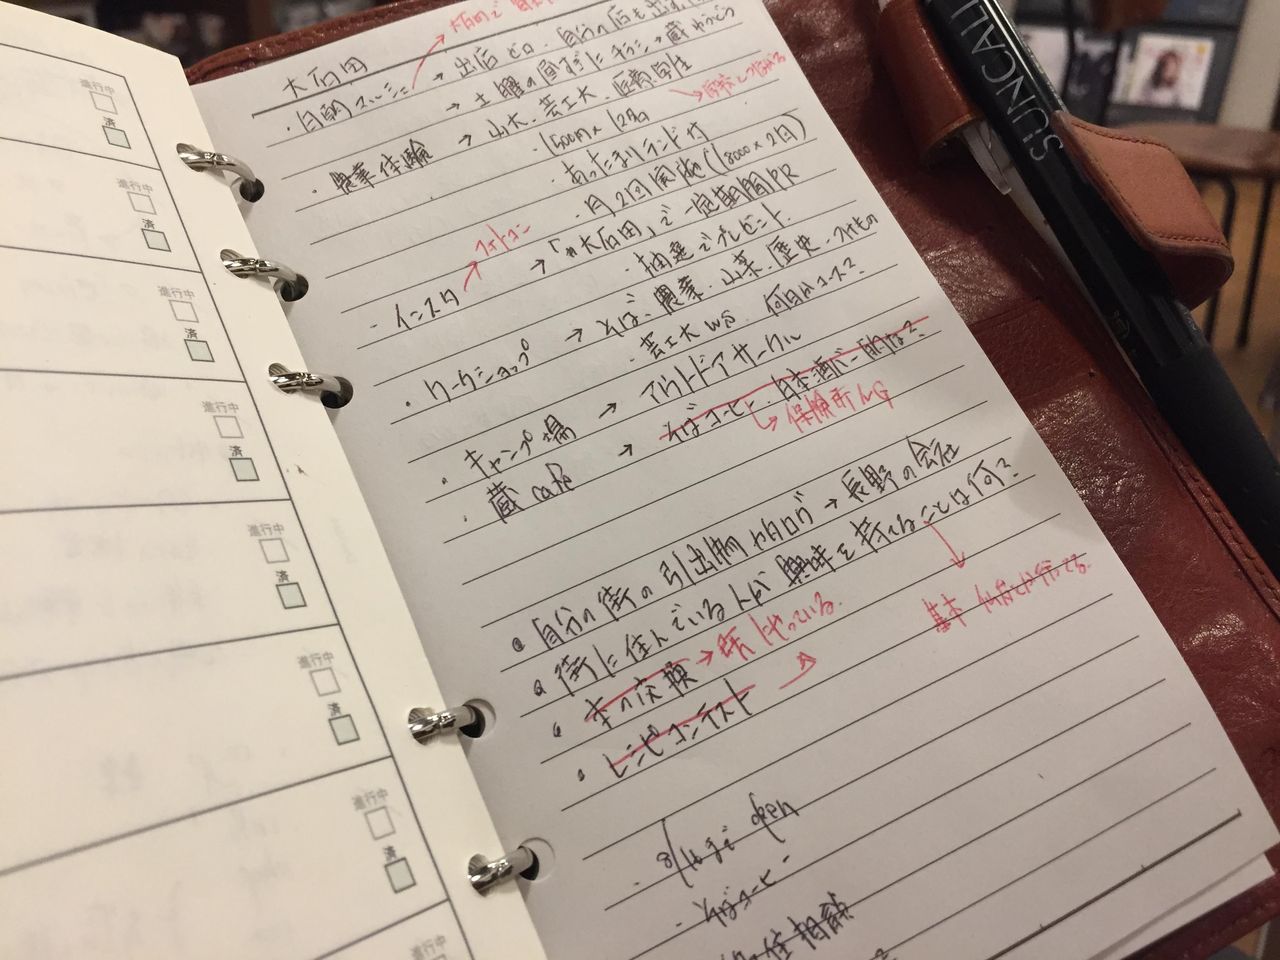 大石田
・自朝マルシェ → 出店ゼロ、自分の店も
→ 土曜の昼すぎにチラシ→蔵
・農業体験 → 山大、芸工大、医療学生
・1500円×12名
・あったまりランド付
・月2回実施(18000×2回)
・インスタ → 「#大石田」で一定期間PR
フォトコン
・抽選でプレゼント
・ワークショップ → そば、農業、山菜、歴史、つけもの
・芸工大WS 何日かコース?
・キャンプ場 → アウトドアサークル
・蔵cafe → そばコーヒー、日本酒バー的な?
↳ 保険所NG
・自分の街の引出物カタログ → 長野の会社
・街に住んでいる人が興味を持てることは何?
基本
・本の交換 → 既にやっている。
・レシピコンテスト
・open
・そばコーヒー
住相談
進行中
済
進行中
済
進行中
済
進行中
済
進行中
済
進行中
済
進行中
済
進行中
SUNCALL